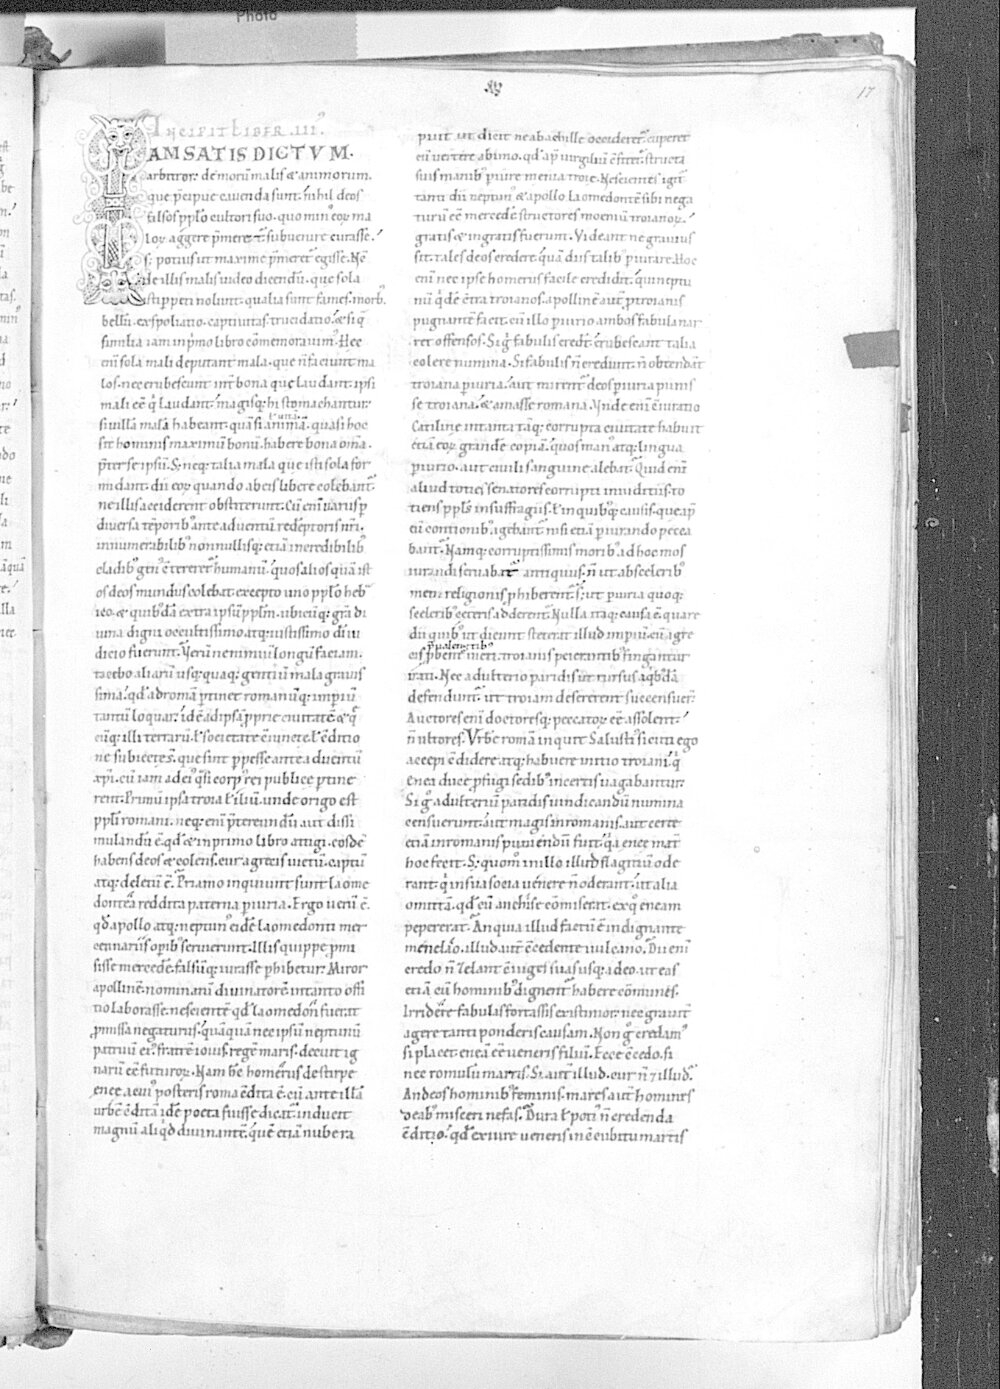 Photo
17
INCIPIT LIBER .III.
IAM SATIS DICTVM.
arbitror. de morū malis & animorum.
que p̄cipue cauenda sunt. nihil deos
falsos pp̄lo cultori suo. quo min᾽ eoꝝ ma
loꝝ aggere p̄meret᷑ subuenire curasse.
s; potius ut maxime p̄meret᷑ egisse. Nc̄
de illis malis uideo dicendū. que sola
isti ꝑpeti nolunt. qualia sunt fames. morb᾽.
bellū. exspoliatio. captiuitas. trucidatio. & siq̄
similia iam in p̄mo libro cōmemorauim᾽. Hec
eni sola mali deputant mala. que n̄ faciunt ma
los. nec erubescunt int̄ bona que laudant. ipsi
mali eē q̇ laudant. magisq; hi stomachantur.
si uillā malā habeant. quā si uitā. quasi hoc
sit hominis maximū bonū. habere bona om̄a.
p̄ter se ipsū. S; neq; talia mala que isti sola for
midant. dii eoꝝ quando ab eis libere colebant᷑.
ne illis acciderent obstiterunt. Cū eni uariis ꝑ
diuersa tēporib᾽ ante aduentū redēptoris nr̄i.
innumerabilib᾽ nonnullisq; etiā incredibilib᾽
cladib᾽ gen᾽ cōtereret᷑ humanū. quos alios quā ist
os deos mundus colebat. excepto uno pp̄lo heb
reo. & quib᾽dā extra ipsū pp̄lm. ubicūq; gr̄a di
uina digni occultissimo atq; iustissimo diui
dicio fuerunt. Verū ne nimiū longū faciam.
tacebo aliarū usq; quaq; gentiū mala grauis
sima. qd̄ ad romā ptinet romanūq; imperiū
tantū loquar. id ē ad ipsā pprie ciuitatē & q̄
cūq; illi terrarū. ł societate cōiuncte. ł cōditio
ne subiecte s̄. que sint ppesse ante aduentū
xp̄i. cū iam ad ei᾽ q̄si corp᾽ rei publice ptine
rent. Primū ipsa troia ł iliū. unde origo est
ppl̄i romani. neq; eni p̄tereundū aut dissi
mulandū ē. qd̄ & in primo libro attigi. eosdē
habens deos & colens. cur a grecis uictū. captū
atq; deletū ē. Priamo inquiunt sunt laome
dontea reddita paterna piuria. Ergo uerū ē.
qd̄ apollo atq; neptun᾽ eidē laomedonti mer
cennariis opib᾽ seruierunt. Illis quippe pmi
sisse mercedē. falsūq; iurasse phibetur. Miror
apollinē nominatū diuinatorē in tanto offi
tio laborasse. nescientē qd̄ laomedon fuerat
pmissa negaturus. quāquā nec ipsū neptunū
patruū ei᾽. fratrē iouis. regē maris. decuit ig
narū eē futuroꝝ. Nam hc̄ homerus de stirpe
enee. a cui᾽ posteris roma cōdita ē. cū ante illā
urbē cōditā idē poeta fuisse dicat᷑. inducit
magnū aliqd̄ diuinantē. quē etiā nube ra
puit ut dicit ne ab achille occideret᷑. cuperet
cū uertere ab imo. qd̄ ap̄ uirgiliū cōfitet᷑. structa
suis manib᾽ piure menia troie. Nescientes igit᷑
tanti dii neptun᾽ & apollo. laomedontē sibi nega
turū eē mercedē structores moeniū troianoꝝ.
gratis & ingratis fuerunt. Videant ne grauius
sit. tales deos credere. quā diis talib᾽ piurare. Hoc
eni nec ipse homerus facile credidit. qui neptu
nū q̇dē cōtra troianos. apollinē aut̄ p troianis
pugnantē facit. cū illo piurio ambos fabula nar
ret offensos. Si g᾽ fabulis credt̄. erubescant talia
colere numina. Si fabulis n̄ credunt. n̄ obtendant
troiana piuria. aut mirent᷑ deos piuria punis
se troiana. & amasse romana. Vnde eni cōiuratio
Catiline in tanta tāq; corrupta ciuitate habuit
etiā eoꝝ grandē copiā. quos man᾽ atq; lingua
piurio. aut ciuili sanguine alebat. Quid eni
aliud toties senatores corrupti in iudiciis. to
tiens ppl̄s in suffragiis. ł in quibq; causis. que ap̄
eū contionib᾽ agebant᷑. nisi etiā piurando pecca
bant. Namq; corruptissimis morib᾽ ad hoc mos
iurandi seruabat᷑ antiquus. n̄ ut ab sceleri᾽
metu religionis phiberent᷑. s; ut piuria quoq;
sceleribʼ ceteris adderent. Nulla itaq; causa ē. quare
dii quib᾽ ut dicunt steterat illud imꝑiū. cū a gre
cis pualentib᾽ uicti. troianis peierantib᾽ fingantur
irati. Nec adulterio paridis ut rursus a qb᾽dā
defendunt᷑. ut troiam desererent succensuer̄.
Auctores eni doctoresq; peccatoꝝ eē assolent.
n̄ ultores. Vrbē romā inquit Salusti᾽ sicuti ego
accepi cōdidere atq; habuere initio troiani. q̇
enea duce pfugi sedib᾽ incertis uagabantur.
Si g᾽ adulteriū paridis uindicandū numina
censuerunt. aut magis in romanis. aut certe
etiā in romanis puniendū fuit. q̇a enee mat̄
hoc fecit. S; quom᾽ in illo illud flagitiū ode
rant. q̇ in sua socia uenere n̄ oderant. ut alia
omittā. qd̄ cū anchise cōmiserat. ex q᾽ eneam
pepererat. An quia illud factū ē indignante
menelao. illud aut̄ cōcedente uulcano. Dii eni
credo n̄ zelant cōiuges suas usq; adeo. ut eas
etiā cū hominib᾽ dignent᷑ habere cōmunes.
Irridere fabulas fortassis existimor. nec grauit̄
agere tanti ponderis causam. Non g᾽ credam᾽
si placet eneā eē ueneris filiū. Ecce cōcedo. si
nec romulū martis. Si aut̄ illud. cur n̄ & illud.
An deos hominib᾽ feminis. mares aut̄ homines
deab᾽ misceri nefas. Dura ł poti᾽ n̄ credenda
cōditio. qd̄ ex iure ueneris in cōcubitu martis